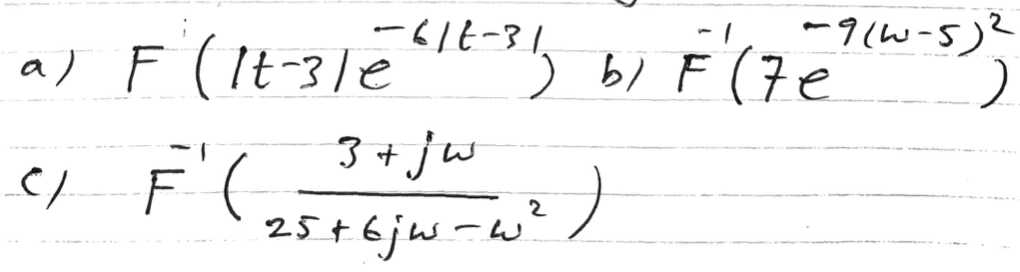 a) F(|t-3|e^{-6|t-3|}) b) F^{-1}(7e^{-9(w-5)^2})
c) F^{-1}(\frac{3+jw}{25+6jw-w^2})